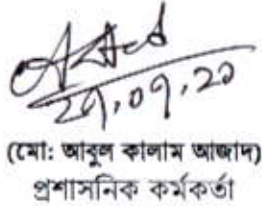 Azad
29.09.20
(মো: আবুল কালাম আজাদ)
প্রশাসনিক কর্মকর্তা